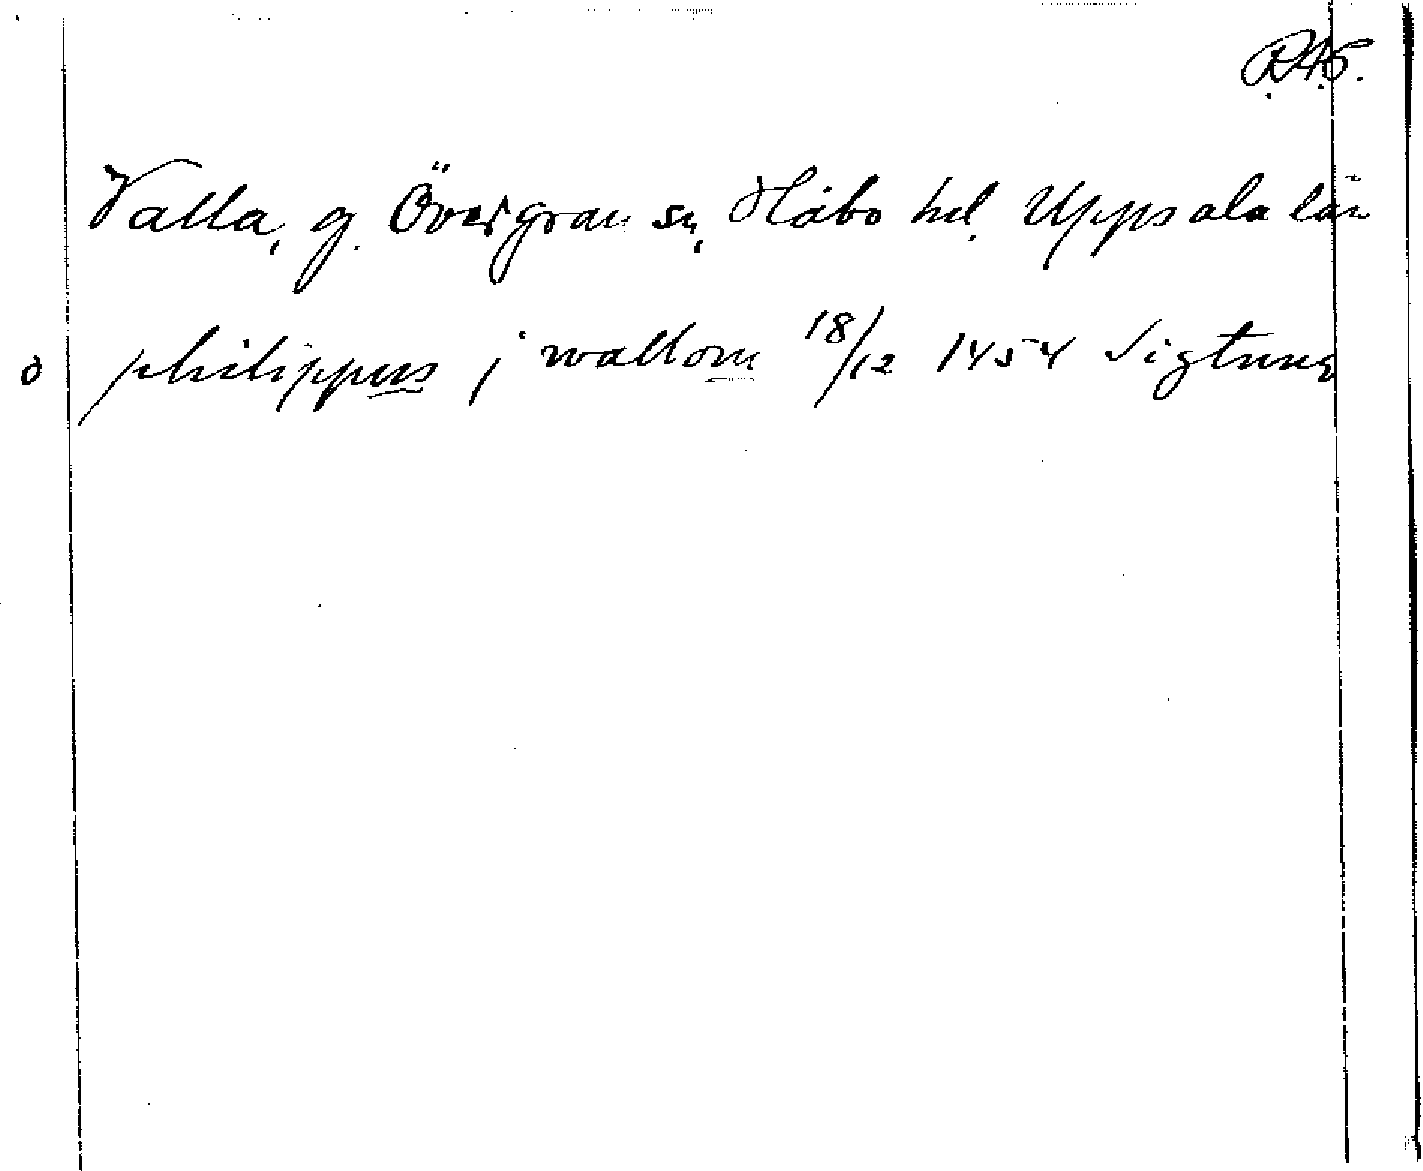 R45.
Valla, g. Övergran sn, Håbo hd. Uppsala län
o philippus j wallom 18/12 1454 Sigtuna